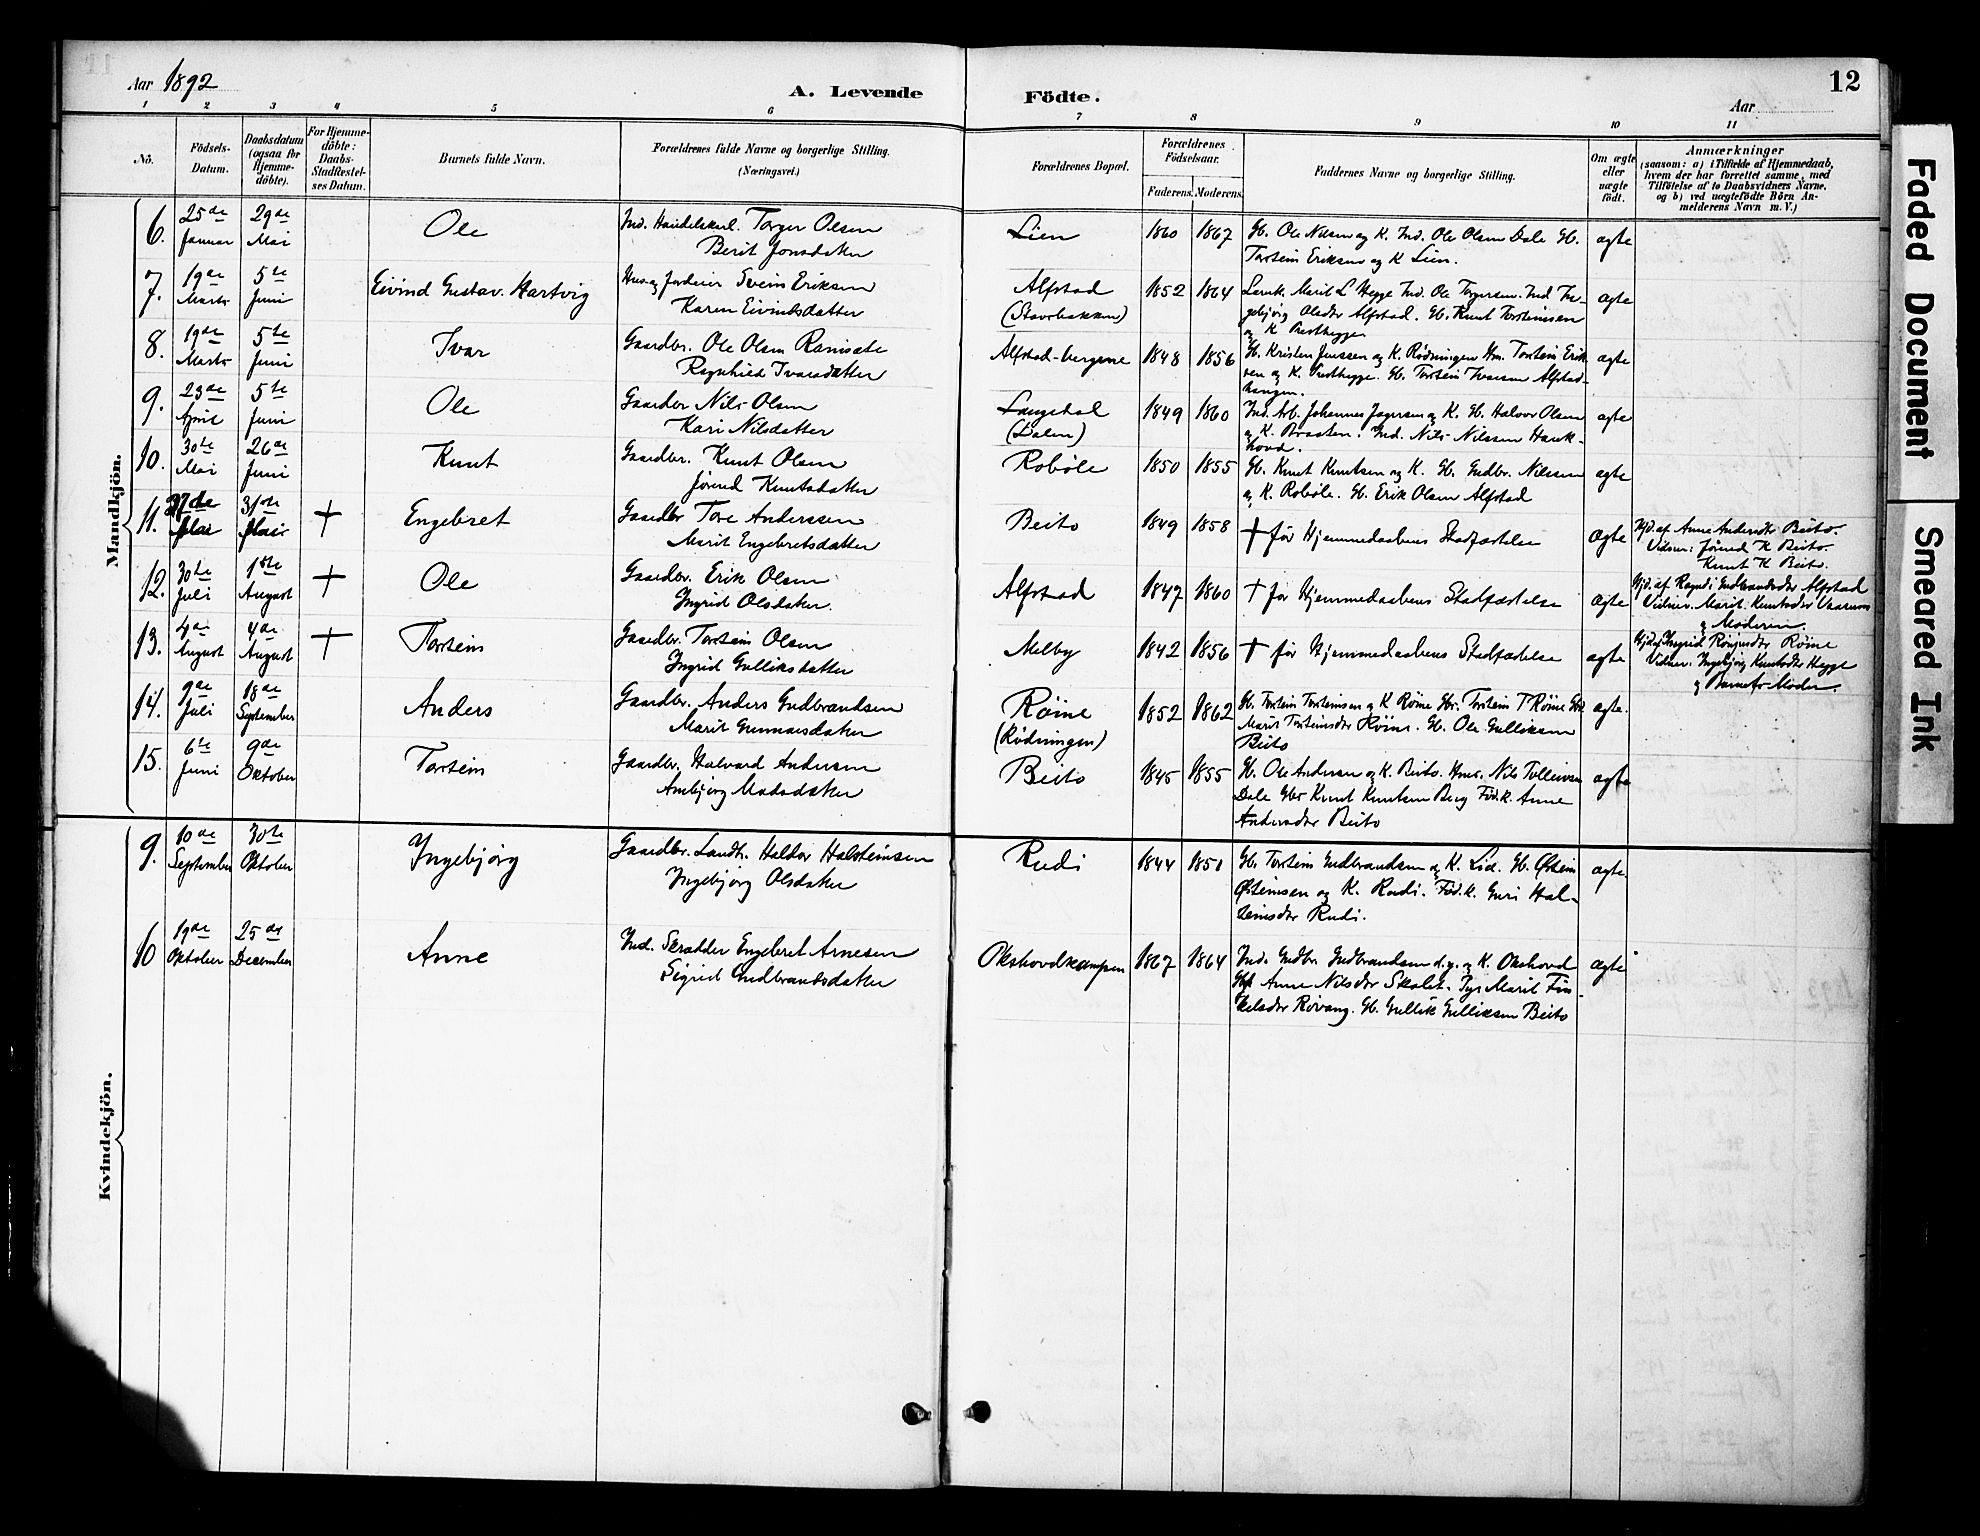 Aar 1892
A. Levende Födte.
12
Aar
1 2 3 4 5 6 7 8 9 10 11
No.
Födsels-
Datum.
Daabsdatum
(ogsaa for
Hjemme-
döbte).
For Hjemme-
döbte:
Daabs-
Stadfæstel-
ses Datum.
Barnets fulde Navn.
Forældrenes fulde Navne og borgerlige Stilling.
(Næringsvei.)
Forældrenes Bopæl.
Forældrenes
Födselsaar.
Faderens. Moderens.
Faddernes Navne og borgerlige Stilling.
Om ægte
eller
uægte
födt.
Anmærkninger
(saasom: a) i Tilfælde af Hjemmedaab,
hvem der har forrettet samme, med
Tilföielse af to Daabsvidners Navne,
og b) ved uægtefödte Börn An-
melderens Navn m. V.)
Mandkjön.
6.
25de
Januar
29de
Mai
Ole
Ind. Handelskarl. Torger Olsen
Berit Jonsdatter
Lien
1860 1867
Gb. Ole Nilsen og K. Ind. Ole Olsen Dale Gb.
Torstein Eriksen og K Lien.
ægte
7.
19de
Marts
5te
Juni
Eivind Gustav Hartvig
Hus og Jordeier Svein Eriksen
Karen Eivindsdatter
Alfstad
(Stavebakken)
1852 1864
Marit L Hegge Ind. Ole Torgersen. Ind In-
gebjörg Olsdtr Alfstad. Gb. Knut Torsteinsen
og K Presthegge
ægte
8.
19de
Marts
5te
Juni
Ivar
Gaardbr. Ole Olsen Ranisate
Ragnhild Ivarsdatter
Alfstad-bergene
1848 1856
Gb. Kristen Jenssen og K. Rödningen Hm. Torstein Erik
sen og K. Presthegge. Gb. Torstein Ivarsen Alfstad-
haugen.
ægte
9.
23de
April
5te
Juni
Ole
Gaardbr Nils Olsen
Kari Nilsdatter
Langedal
(Dalen)
1849 1860
Ind. Arb. Johannes og K. Gb. Halvor Olsen
og K. Brasten. Ind. Nils Nilssen Hauk-
hovd.
ægte
10.
30te
Mai
26de
Juni
Knut
Gaardbr. Knut Olsen
Jörend Knutsdatter
Robøle
1850 1855
Gb. Knut Knutsen og K. Gb. Gudbr. Nilssen
og K. Robøle. Gb. Erik Olsen Alfstad
ægte
11.
27de
Mai
31te
Mai
+
Engebret
Gaardbr Tore Anderssen
Marit Engebretsdatter
Beito
1849 1858
+ før Hjemmedaabens Stadfæstelse
ægte
Hjd. af Anne Andersdtr Beito.
Vidner: Jörend K Beito.
Knut K Beito.
12.
30te
Juli
1ste
August
+
Ole
Gaardbr. Erik Olsen
Ingrid Olsdatter.
Alfstad
1847 1860
+ før Hjemmedaabens Stadfæstelse
ægte
Hjd. af Ragndi Gudbrandsdtr Alfstad
Vidner. Marit Knutsdtr
og Moderen.
13.
4de
August
4de
August
+
Torstein
Gaardbr. Torstein Olsen
Ingrid Gulliksdatter
Melby
1842 1856
+ før Hjemmedaabens Stadfæstelse
ægte
Hjd af Ingrid Röine
Vidner. Ingebjörg Knutsdtr Hegge
og Barnets Moder.
14.
9de
Juli
18de
September
Anders
Gaardbr. Anders Gudbrandsen
Marit Gunnarsdatter
Röine
(Rødningen)
1852 1862
Gb. Torstein Torsteinsen og K Röine Gbr. Torstein T Röine
Marit Torsteinsdtr Röine. Gb. Ole Gulliksen
Beito
ægte.
15.
6te
Juni
9de
Oktober
Torstein
Gaardbr. Halvard Andersen
Ambjörg Madsdatter
Beito
1845 1855
Gb. Ole Andersen og K. Beito. Hmr. Nils Tolleivsen
Dale Gbr Knut Knutsen Berg Föd.k. Anne
Andersdtr Beito
ægte
Kvindekjön.
9.
10de
September
30te
Oktober
Ingebjörg
Gaardbr. Landh. Haldor Halsteinsen
Ingebjörg Olsdatter
Rudi
1844 1851
Gb. Torstein Gudbrandsen og K. Lid. Gb. Östein
Östeinsen og K. Rudi. Föd.k. Guri Hal-
steinsdtr Rudi.
ægte.
10
19de
Oktober
25de
December
Anne
Ind. Skrædder Engebret Arnesen
Sigrid Gudbrandsdatter
Okshovdkampen
1867 1864
Ind. Gudbr. Gudbrandsen d.y. og K. Okshovd
Anne Nilsdtr Skalet. Marit Fin-
kelsdtr Røvang. Gb. Gullik Gulliksen Beito
ægte
Faded Document
Smeared Ink